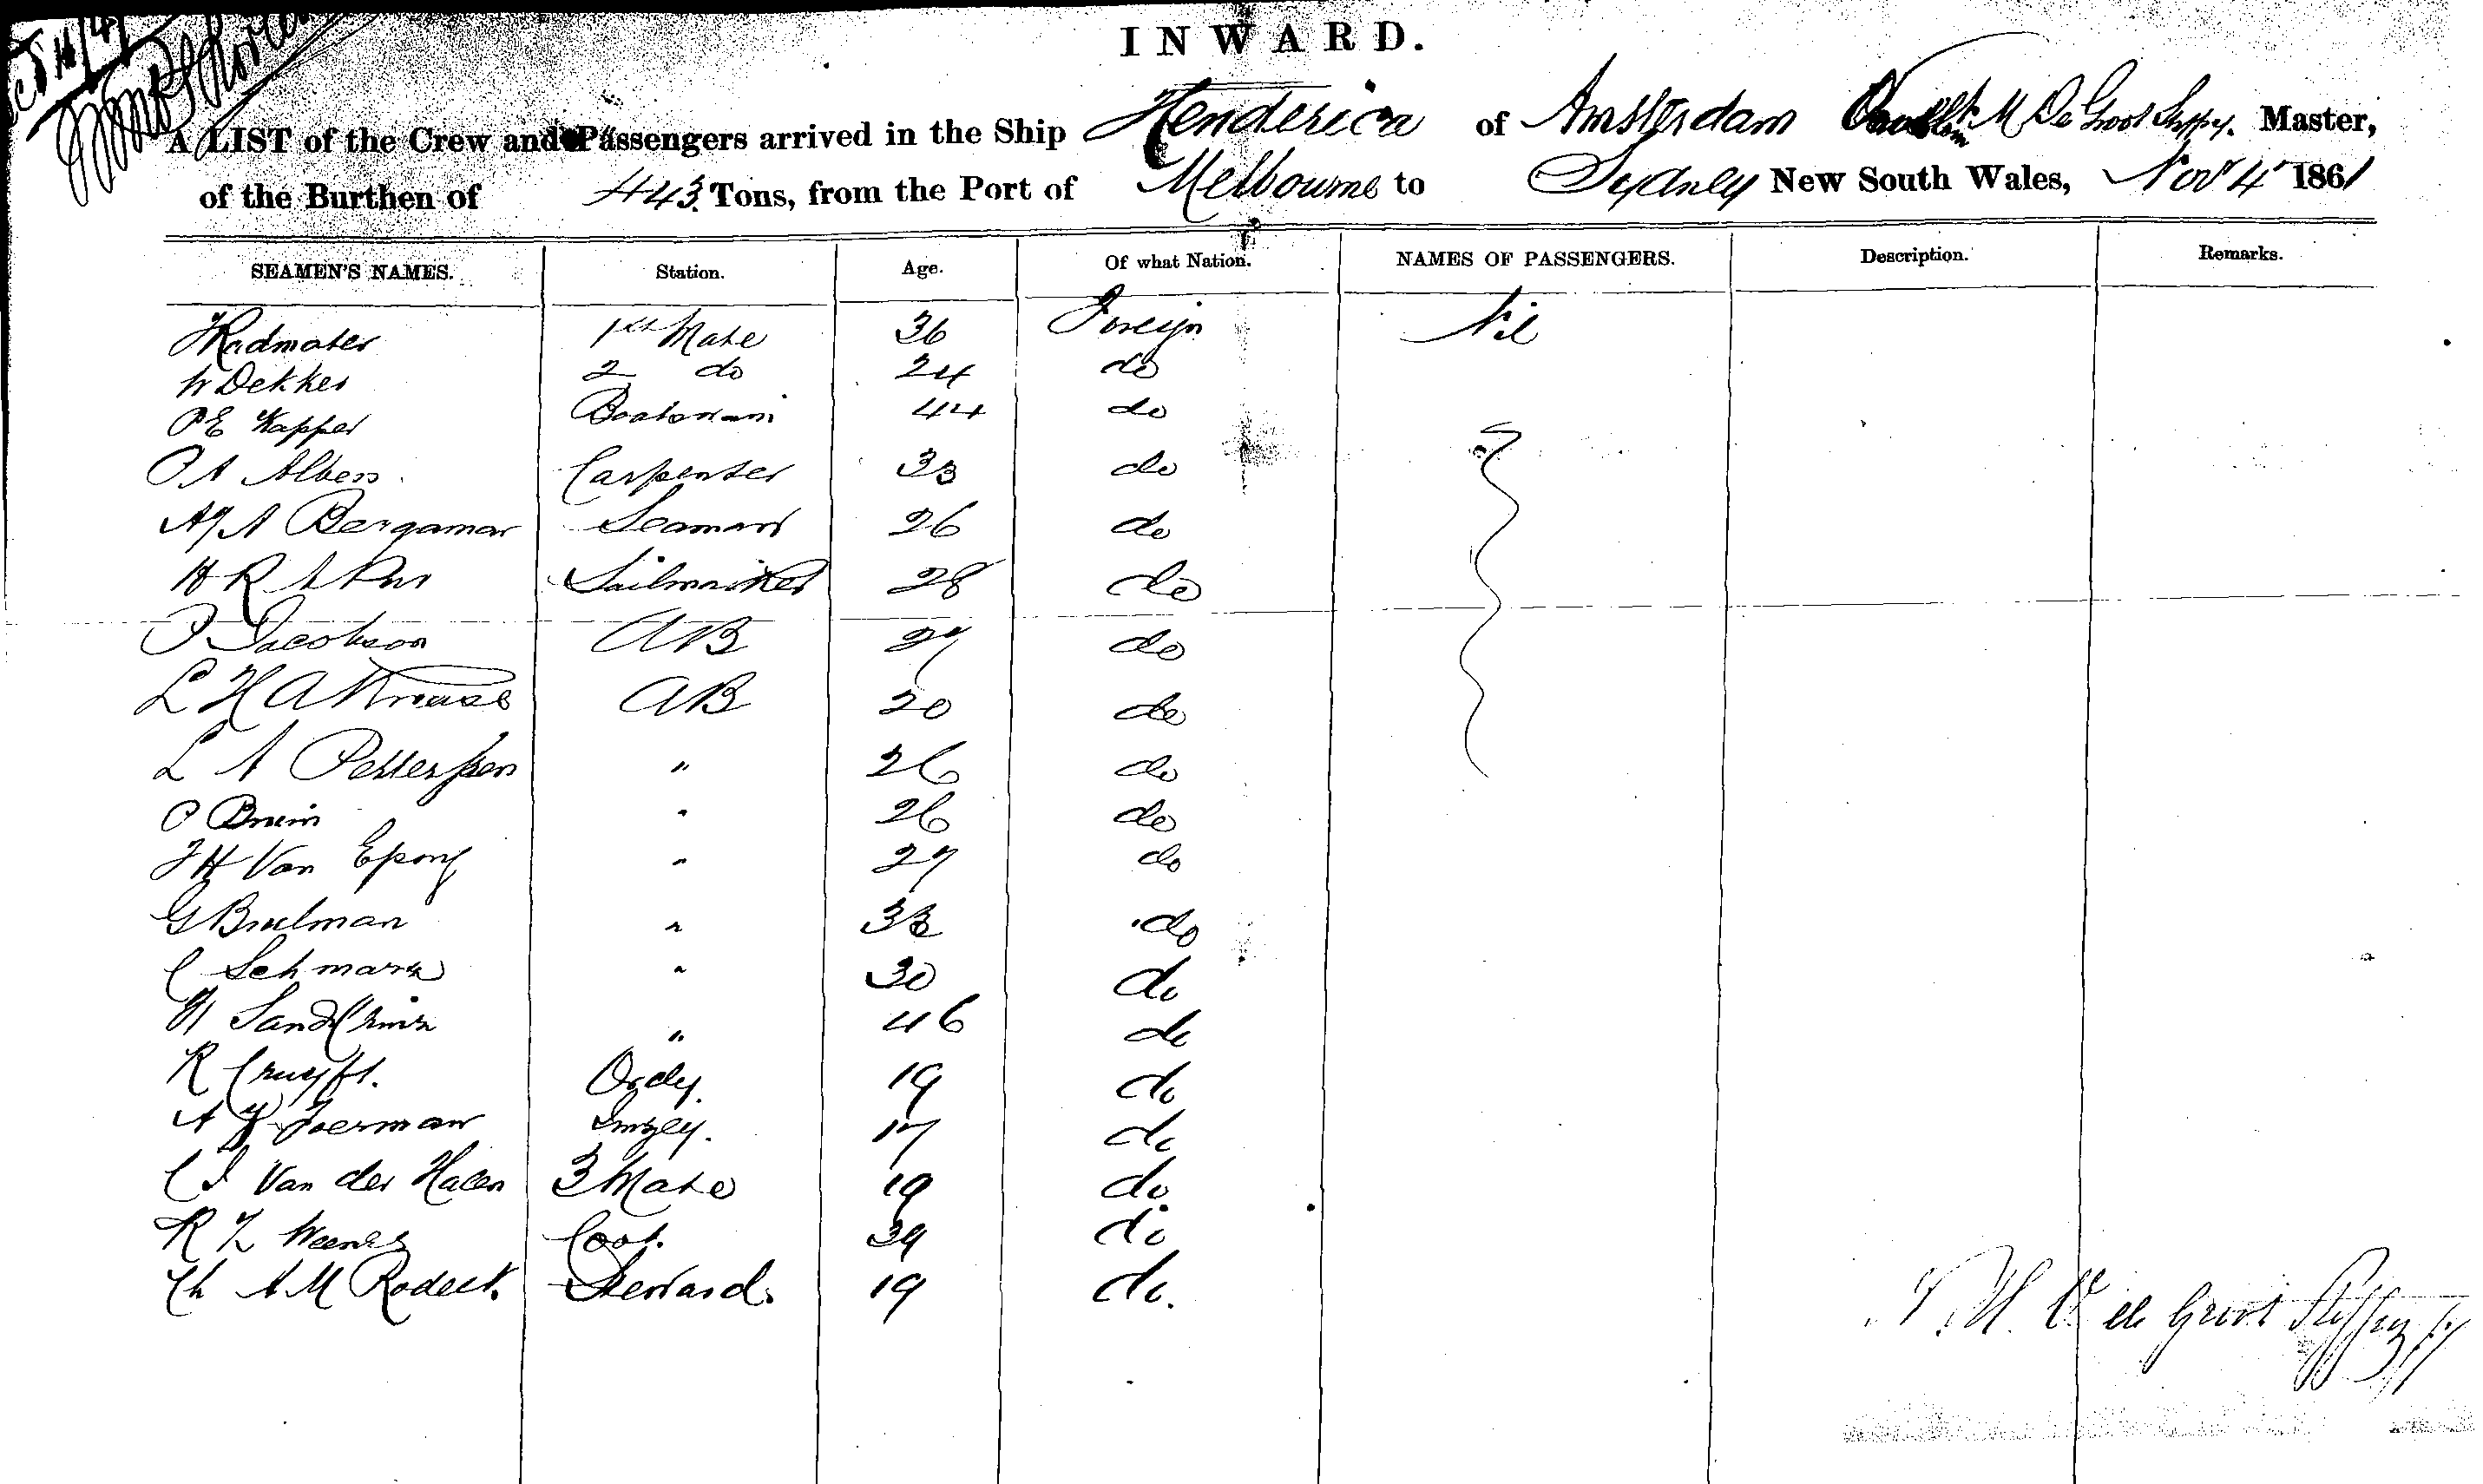 INWARD.
A LIST of the Crew and Passengers arrived in the Ship Henderica of Amsterdam M De Groot Master,
of the Burthen of 443 Tons, from the Port of Melbourne to Sydney New South Wales, Nov 4 1861
SEAMEN'S NAMES. Station. Age. Of what Nation. NAMES OF PASSENGERS. Description. Remarks.
Radmaker 1st Mate 36 Foreign Nil
W Dekker 2 do 24 do
P E Kapper Boatswain 44 do
P A Albers Carpenter 33 do
A J A Bergamar Seaman 26 do
H R Sailmaker 28 do
P Jacobson AB 27 do
L H A Krouse AB 20 do
L A Petterssen " 26 do
P Bruin " 26 do
J H Van " 27 do
G Brulman " 33 do
C Schmark " 30 do
" 46 do
R Cruyft. Ordy. 19 do
A J Foerman 17 do
C J Van der Halen 3 Mate 19 do
R Z Cook. 39 do
Ch A M Rodeck. Steward. 19 do.
de Groot